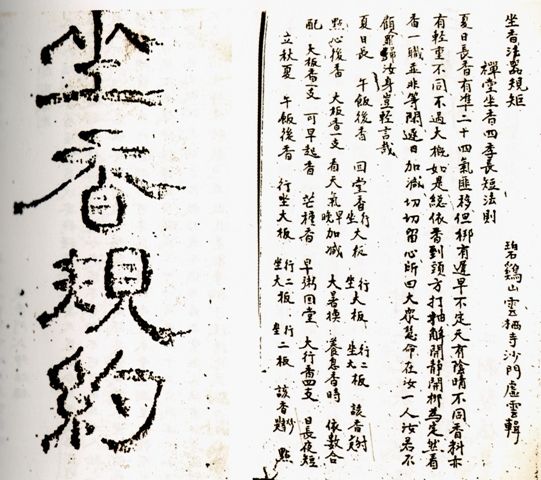 坐香法器規矩 碧鷄山雲栖寺沙門虛雲輯
禪堂坐香四季長短法則
夏日長香有準二十四氣匪移但梆有遲早不定天有陰晴不同香料亦
有輕重不同不過大概如是總依香到頭方打抽解開靜開梆為定然看
香一職並非等閒遲日加減切切留心所田大衆慧命在汝一人汝若不
顧罪歸汝身豈輕言哉
夏日長 午飯後香 回堂香行坐大板 行大板坐大 行二板坐 該香
點心後香 大板香一支 看天氣早晚加減 養息香時 依數合
配 大板香一支 可早起香 芒種香 早粥回堂 大行香四支 日長夜短
立秋夏 午飯後香 行坐大板 行二板坐大 行坐二板 該香 點
坐香規約